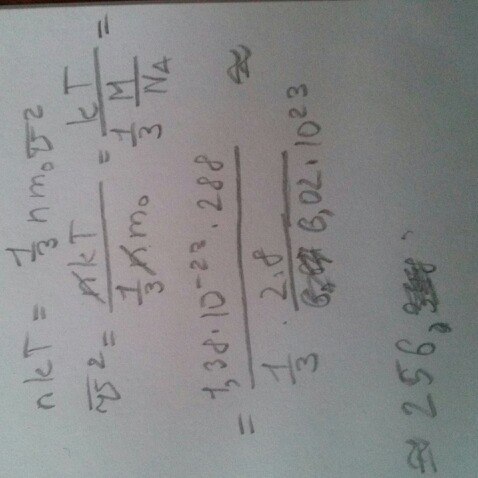 nkT = 1/3 n m₀ v̅²
v̅² = nkT / (1/3 n m₀) = kT / (1/3 M/N_A) =
= 1,38·10⁻²³·288 / (1/3 · 2.8 / 6,02·10²³) ≈
≈ 256,